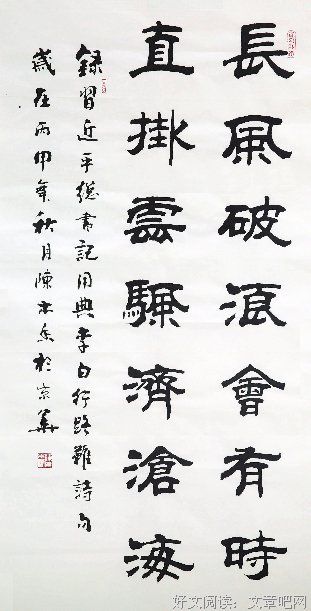 長風破浪會有時
直掛雲颿濟滄海
錄習近平總書記用典李白行路難詩句
歲在丙申年秋月陳木於京華
好文阅读：文章吧网